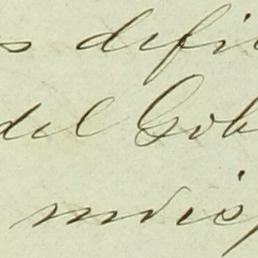 s defi
del Gob
indis